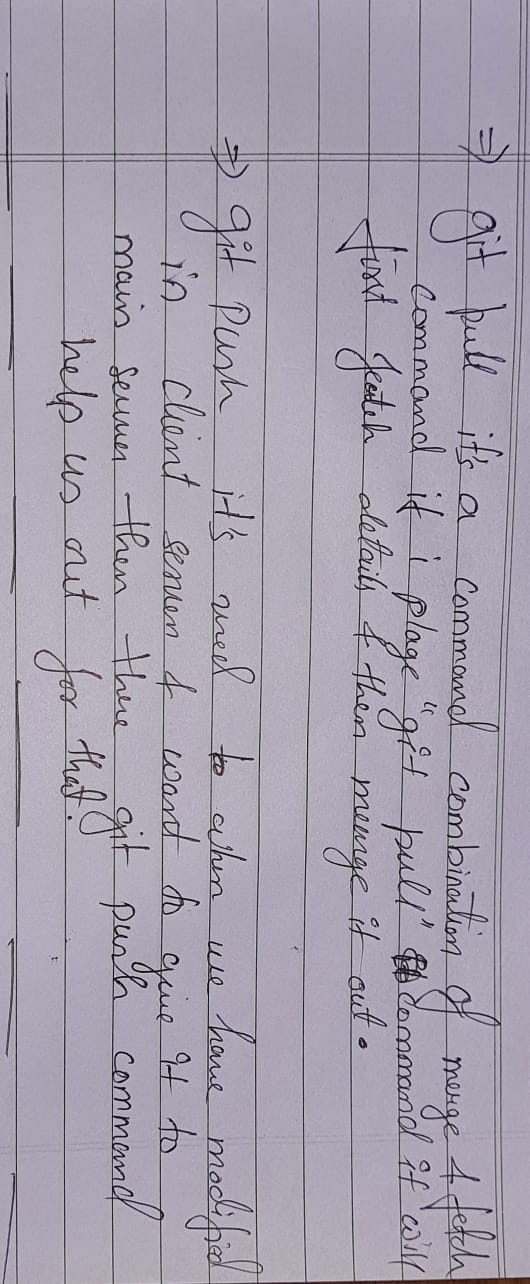 ⇒ git pull it's a command combination of merge & fetch
command if i place "git pull" command it will
first featch details & then merge it out.
⇒ git push it's used to when we have modified
in client server & want to give it to
main server then there git push command
help us out for that.